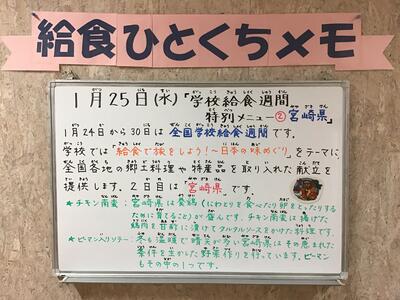 給食ひとくちメモ
1月25日(水)「学校給食週間
特別メニュー②宮崎県」
1月24日から30日は全国学校給食週間です。
学校では「給食で旅をしよう!~日本の味めぐり」をテーマに
全国各地の郷土料理や特産品を取り入れた献立を
提供します。2日目は「宮崎県」です。
★チキン南蛮:宮崎県は養鶏(にわとりを食べたり卵をとったりする
ために育てること)が盛んです。チキン南蛮は揚げた
鶏肉を甘酢に漬けてタルタルソースをかけた料理です。
★ピーマン入りソテー:冬も温暖で晴天が多い宮崎県はその恵まれた
条件を生かした野菜作りを行っています。ピーマン
もその中の1つです。